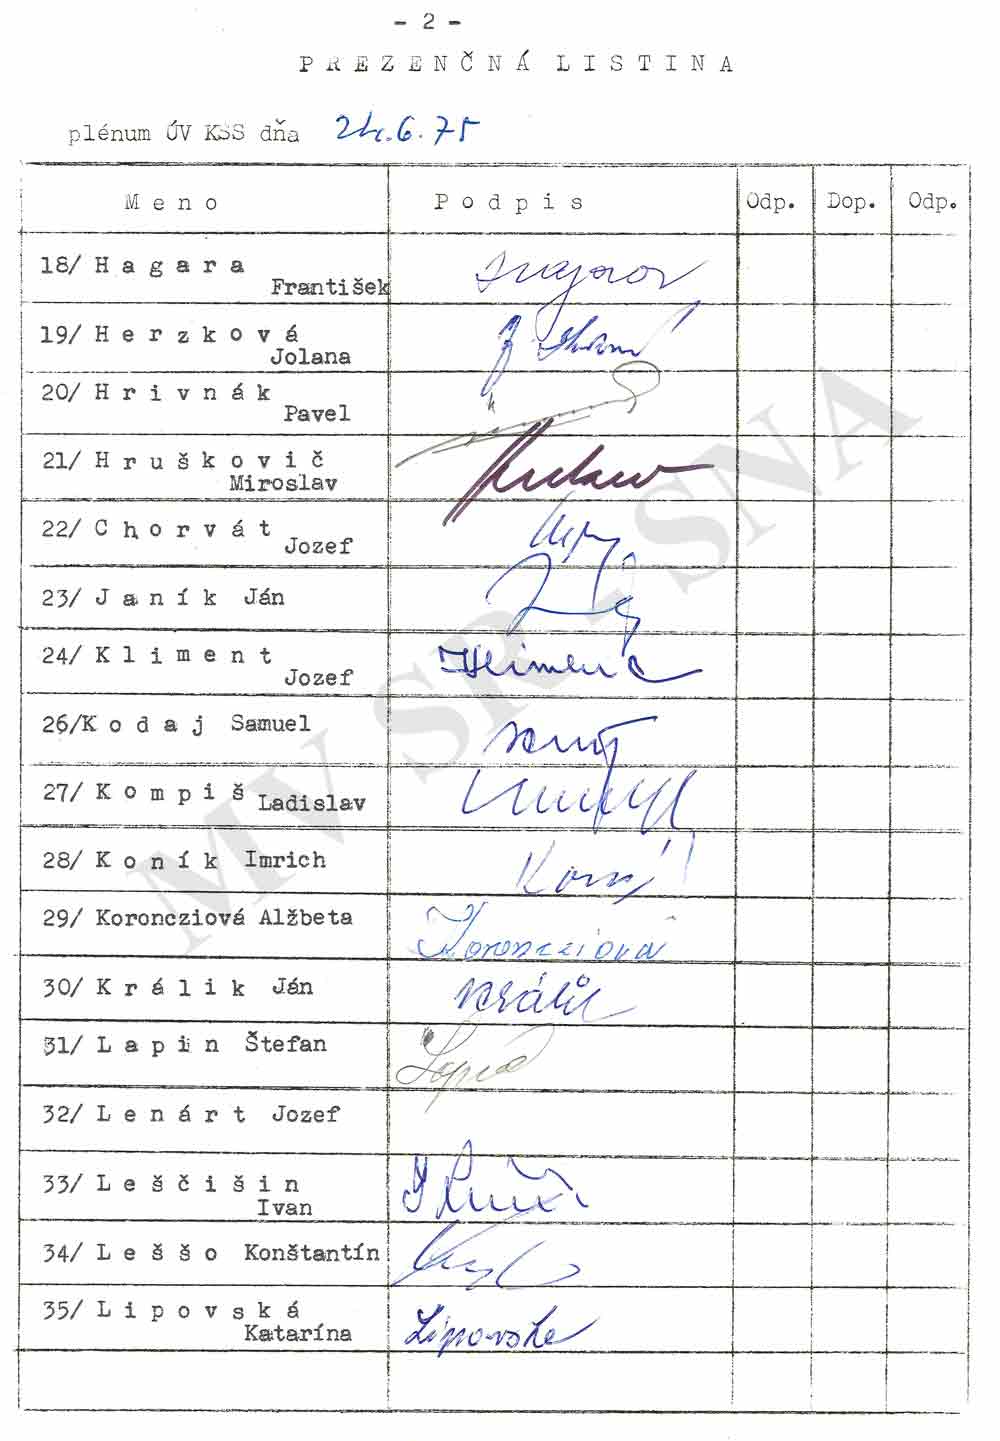 - 2 -
P R E Z E N Č N Á L I S T I N A
plénum ÚV KSS dňa 24.6.75
M e n o P o d p i s Odp. Dop. Odp.
18/ H a g a r a
František
19/ H e r z k o v á
Jolana
20/ H r i v n á k
Pavel
21/ H r u š k o v i č
Miroslav
22/ C h o r v á t
Jozef
23/ J a n í k Ján
24/ K l i m e n t
Jozef
26/K o d a j Samuel
27/ K o m p i š Ladislav
28/ K o n í k Imrich
29/ Koroncziová Alžbeta
Koroncziová
30/ K r á l i k Ján
Králik
31/ L a p i n Štefan
32/ L e n á r t Jozef
33/ L e š č i š i n
Ivan
34/ L e š š o Konštantín
35/ L i p o v s k á
Katarína
Lipovská
MV SR - SNA